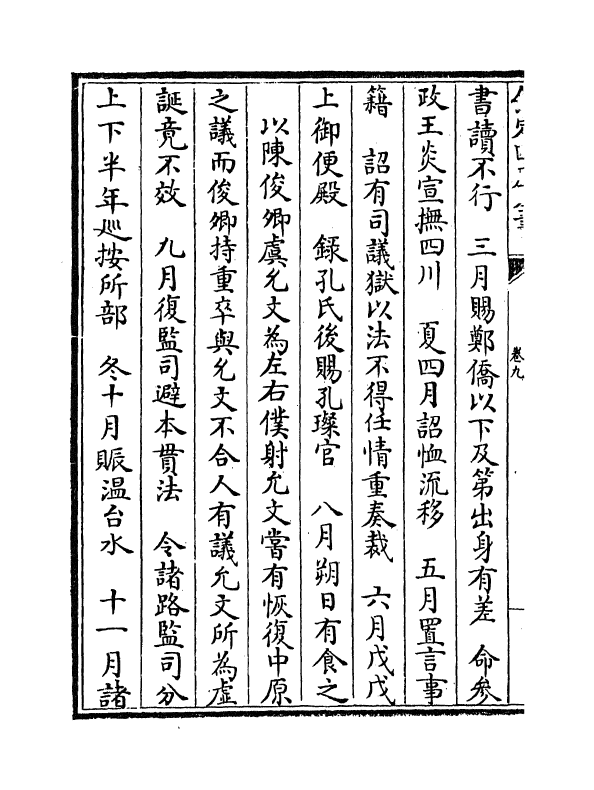 卷九
書讀不行　三月賜鄭僑以下及第出身有差　命參
政王炎宣撫四川　夏四月詔恤流移　五月置言事
籍　詔有司議獄以法不得任情重奏裁　六月戊戌
上御便殿　録孔氏後賜孔璨官　八月朔日有食之
以陳俊卿虞允文為左右僕射允文嘗有恢復中原
之議而俊卿持重卒與允文不合人有議允文所為虛
誕竟不效　九月復監司避本貫法　令諸路監司分
上下半年巡按所部　冬十月賑温台水　十一月諸